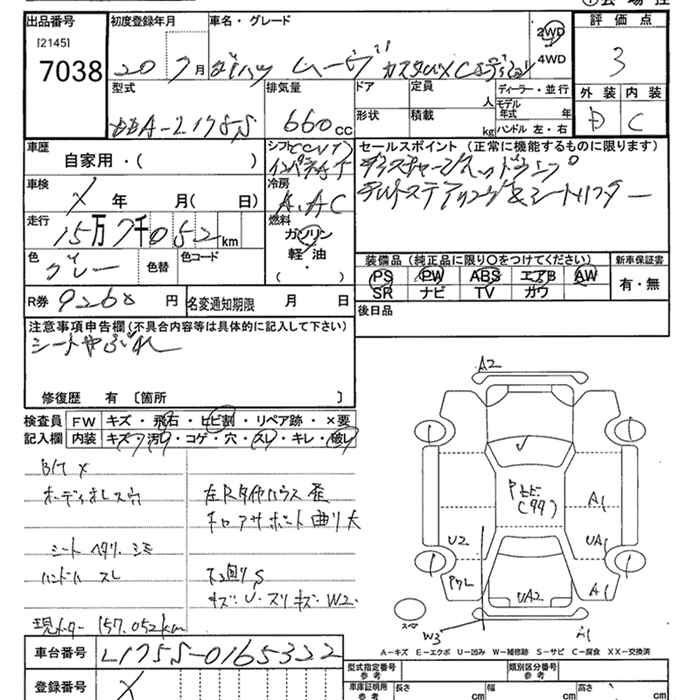 出品番号 初度登録年月 車名・グレード 評価点
[2145] 7038
20年7月 ダイハツ ムーヴ カスタムX 2WD 4WD 3
型式 排気量 ドア 定員 人 ディーラー・並行 外装 内装
DBA-L175S 660cc 形状 積載 kg モデル年式 年 ハンドル 左・右 D C
車歴 自家用・( )
シフト (CVT) インパネAT
セールスポイント (正常に機能するものに限ります)
ディスチャージヘッドランプ
チルトステアリング&シートリフター
車検 X 年 月( 日)
冷房 A.AC
走行 15万7千052km
燃料 ガソリン 軽油 ( ・ )
色 グレー 色替 色コード
装備品 (純正品に限り○をつけてください) 新車保証書
PS PW ABS エアB AW 有・無
SR ナビ TV カワ
R券 9260円 名変通知期限 月 日
後日品
注意事項申告欄(不具合内容等は具体的に記入して下さい)
シートやぶれ
修復歴 有 〔箇所 〕
検査員記入欄 FW キズ・飛石・ヒビ割・リペア跡・×要
内装 キズ・汚レ・コゲ・穴・スレ・キレ・破レ
B/T X
オーディオレス穴
シート ヘタリ、シミ
ハンドル スレ
現メーター 157,052km
左Rタイヤハウス 歪
キロアサポート曲り大
下回りS
キズ・U・スリキズ・W2
A2
A1
U2
UA1
UA2
A1
W3
A1
スペア
A-キズ E-エクボ U-凹み W-補修跡 S-サビ C-腐食 XX-交換済
車台番号 L175S-0165322
登録番号 X
型式指定番号 参考 類別区分番号 参考
車庫証明用 参考 長さ cm 幅 cm 高さ cm